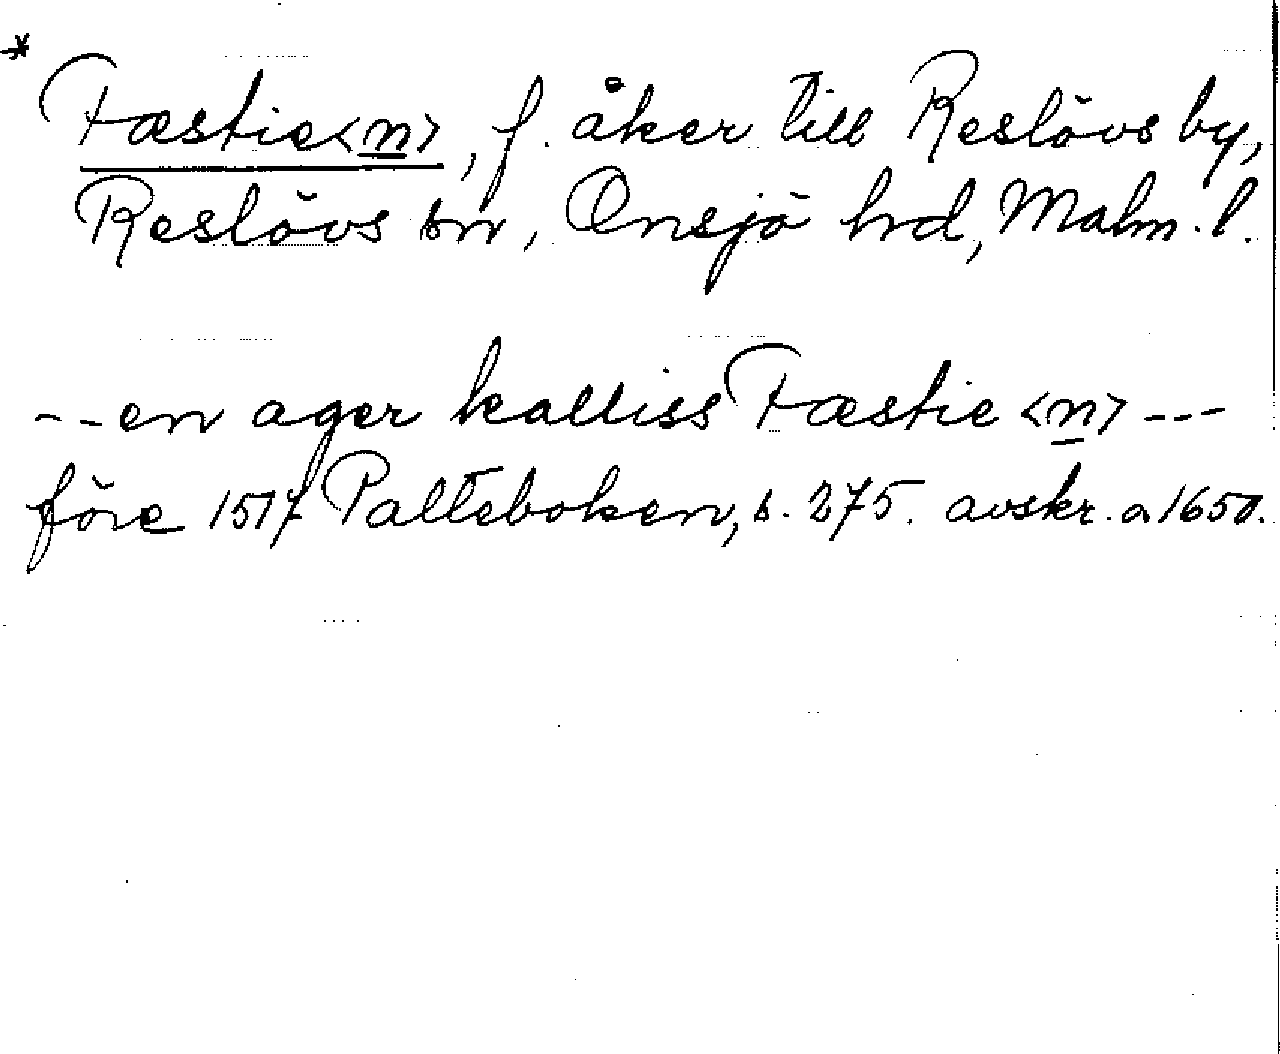 * Fæstie<n>, f. åker till Reslövs by,
Reslövs sn, Onsjö hrd, Malm. l.
--en ager kalliss Fæstie <n> ---
före 1517 Palteboken, s. 275. avskr. a 1650.